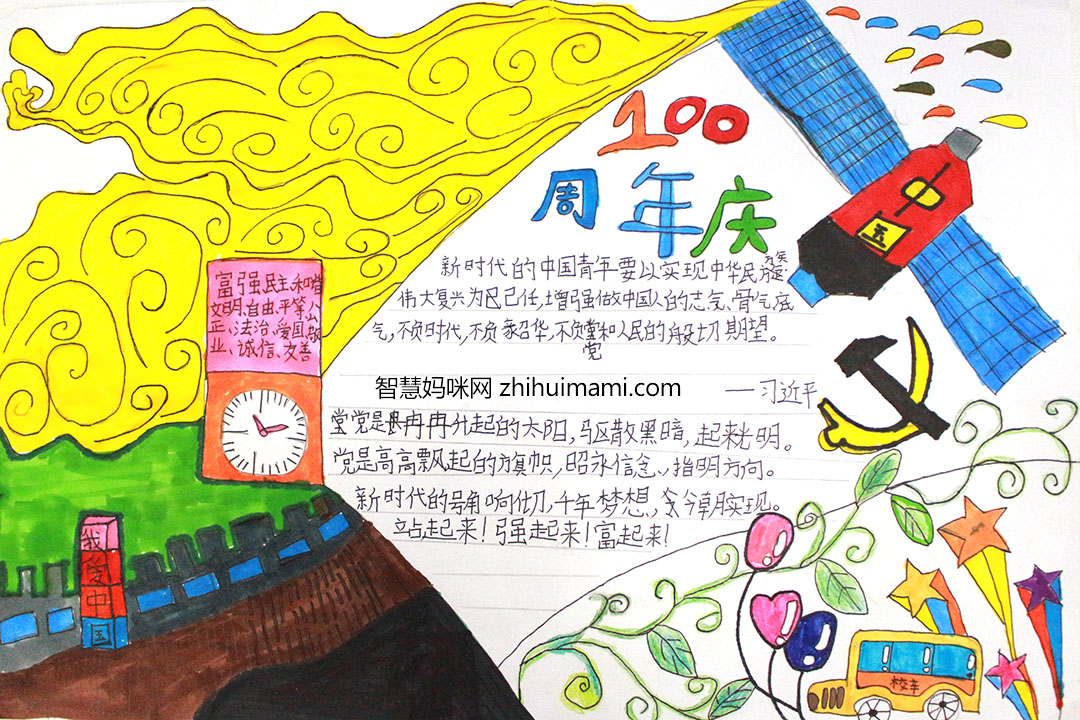 100
周年庆
中
五
新时代的中国青年要以实现中华民族
伟大复兴为己任,增强做中国人的志气、骨气、底
气,不负时代,不负韶华,不负党和人民的殷切期望。
智慧妈咪网 zhihuimami.com
——习近平
党是冉冉升起的太阳,驱散黑暗,起来光明。
党是高高飘起的旗帜,昭永信念、指明方向。
新时代的号角响彻,千年梦想,今朝实现。
站起来!强起来!富起来!
富强、民主、和谐
文明、自由、平等、公
正、法治、爱国、敬
业、诚信、友善
我
爱
中
国
校车